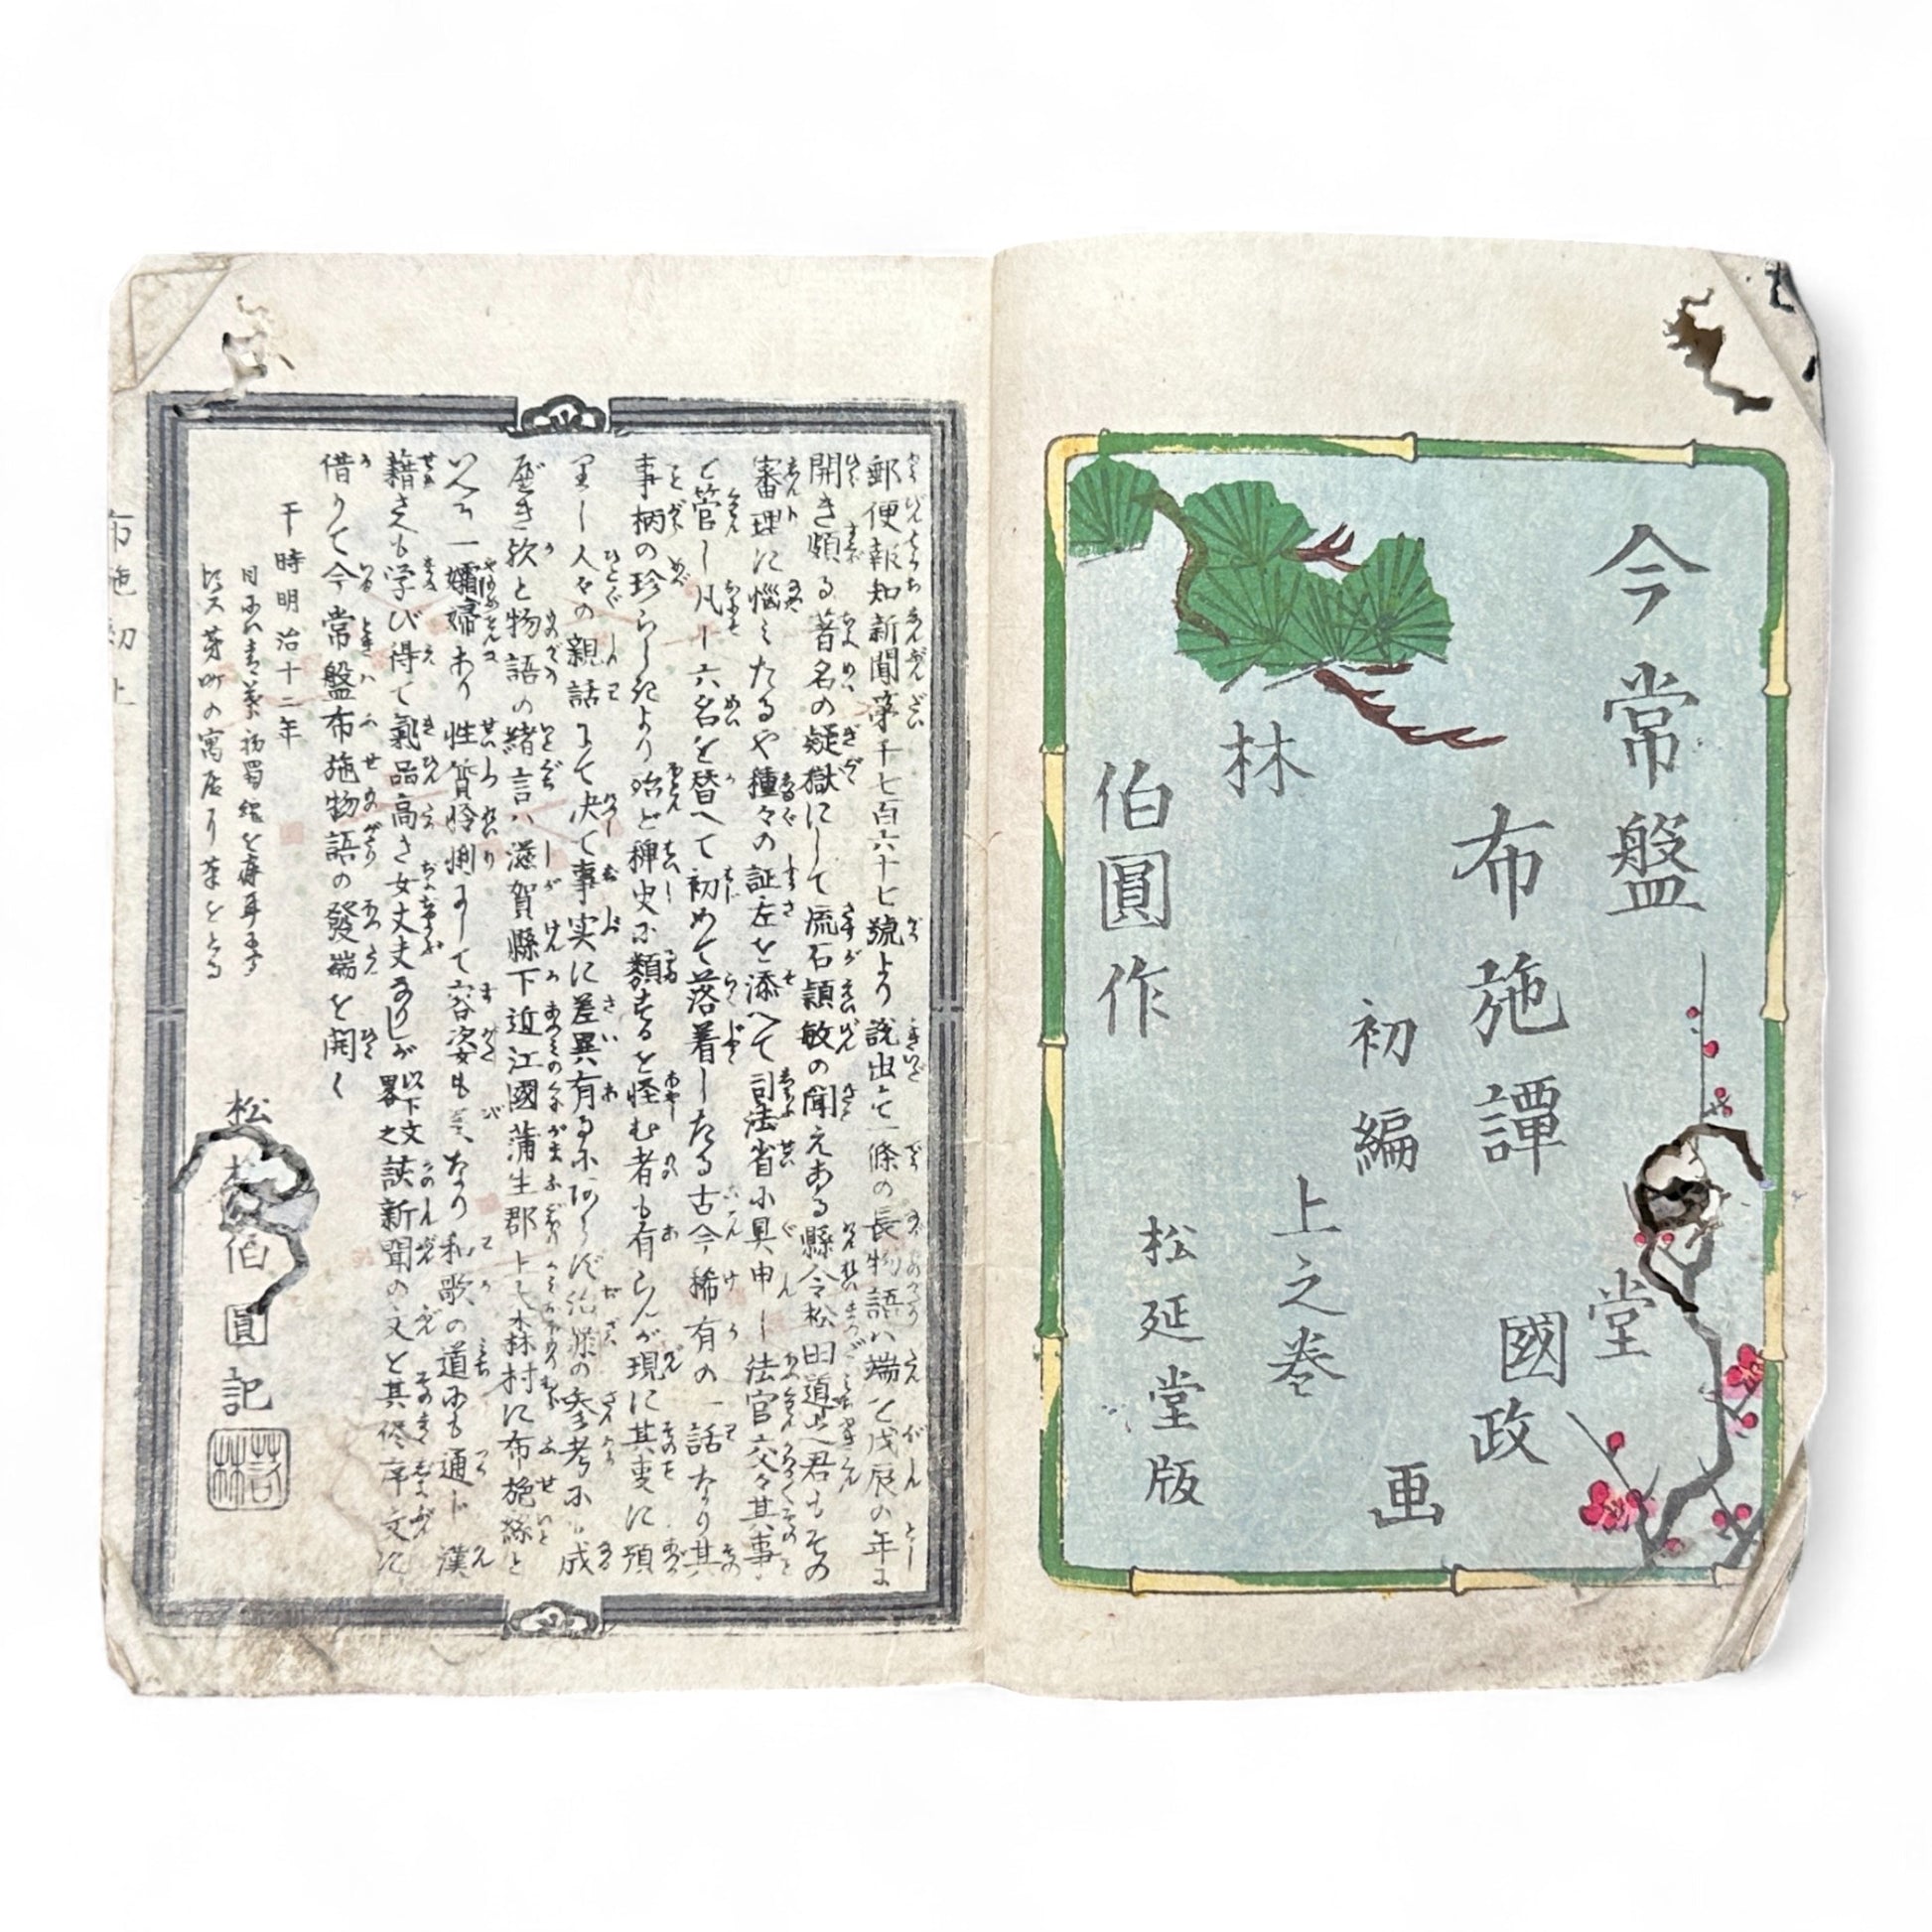 今常盤
布施譚
初編
上之巻
林
伯圓作
堂
國政
画
松延堂版
郵便報知新聞第千七百六十七號より説出て一條の長物語ハ端を戊辰の年に
開き頗る著名の疑獄にして流石頴敏の聞えある縣令松田道之君もその
審理に悩ミたるや種々の証左を添へて司法省に具申し法官交々其事
を管し凡一六名を替へて初めて落着したる古今稀有の一話なり其
事柄の珍らしきより殆ど稗史に類するを怪む者も有らんが現に其事に預
りし人々の親話にて决て事実に差異有るに
歴き欤と物語の緒言ハ滋賀縣下近江國蒲生郡上大森村に布施絲と
いへる一孀婦あり性質怜悧にして容姿も美くなり和歌の道にも通じ漢
籍さへも学び得て氣品高き女丈夫なりしが以下文畧之該新聞の文と其侭序文に
借りて今常盤布施物語の發端を開く
干時明治十二年
松林伯圓記
布施初上